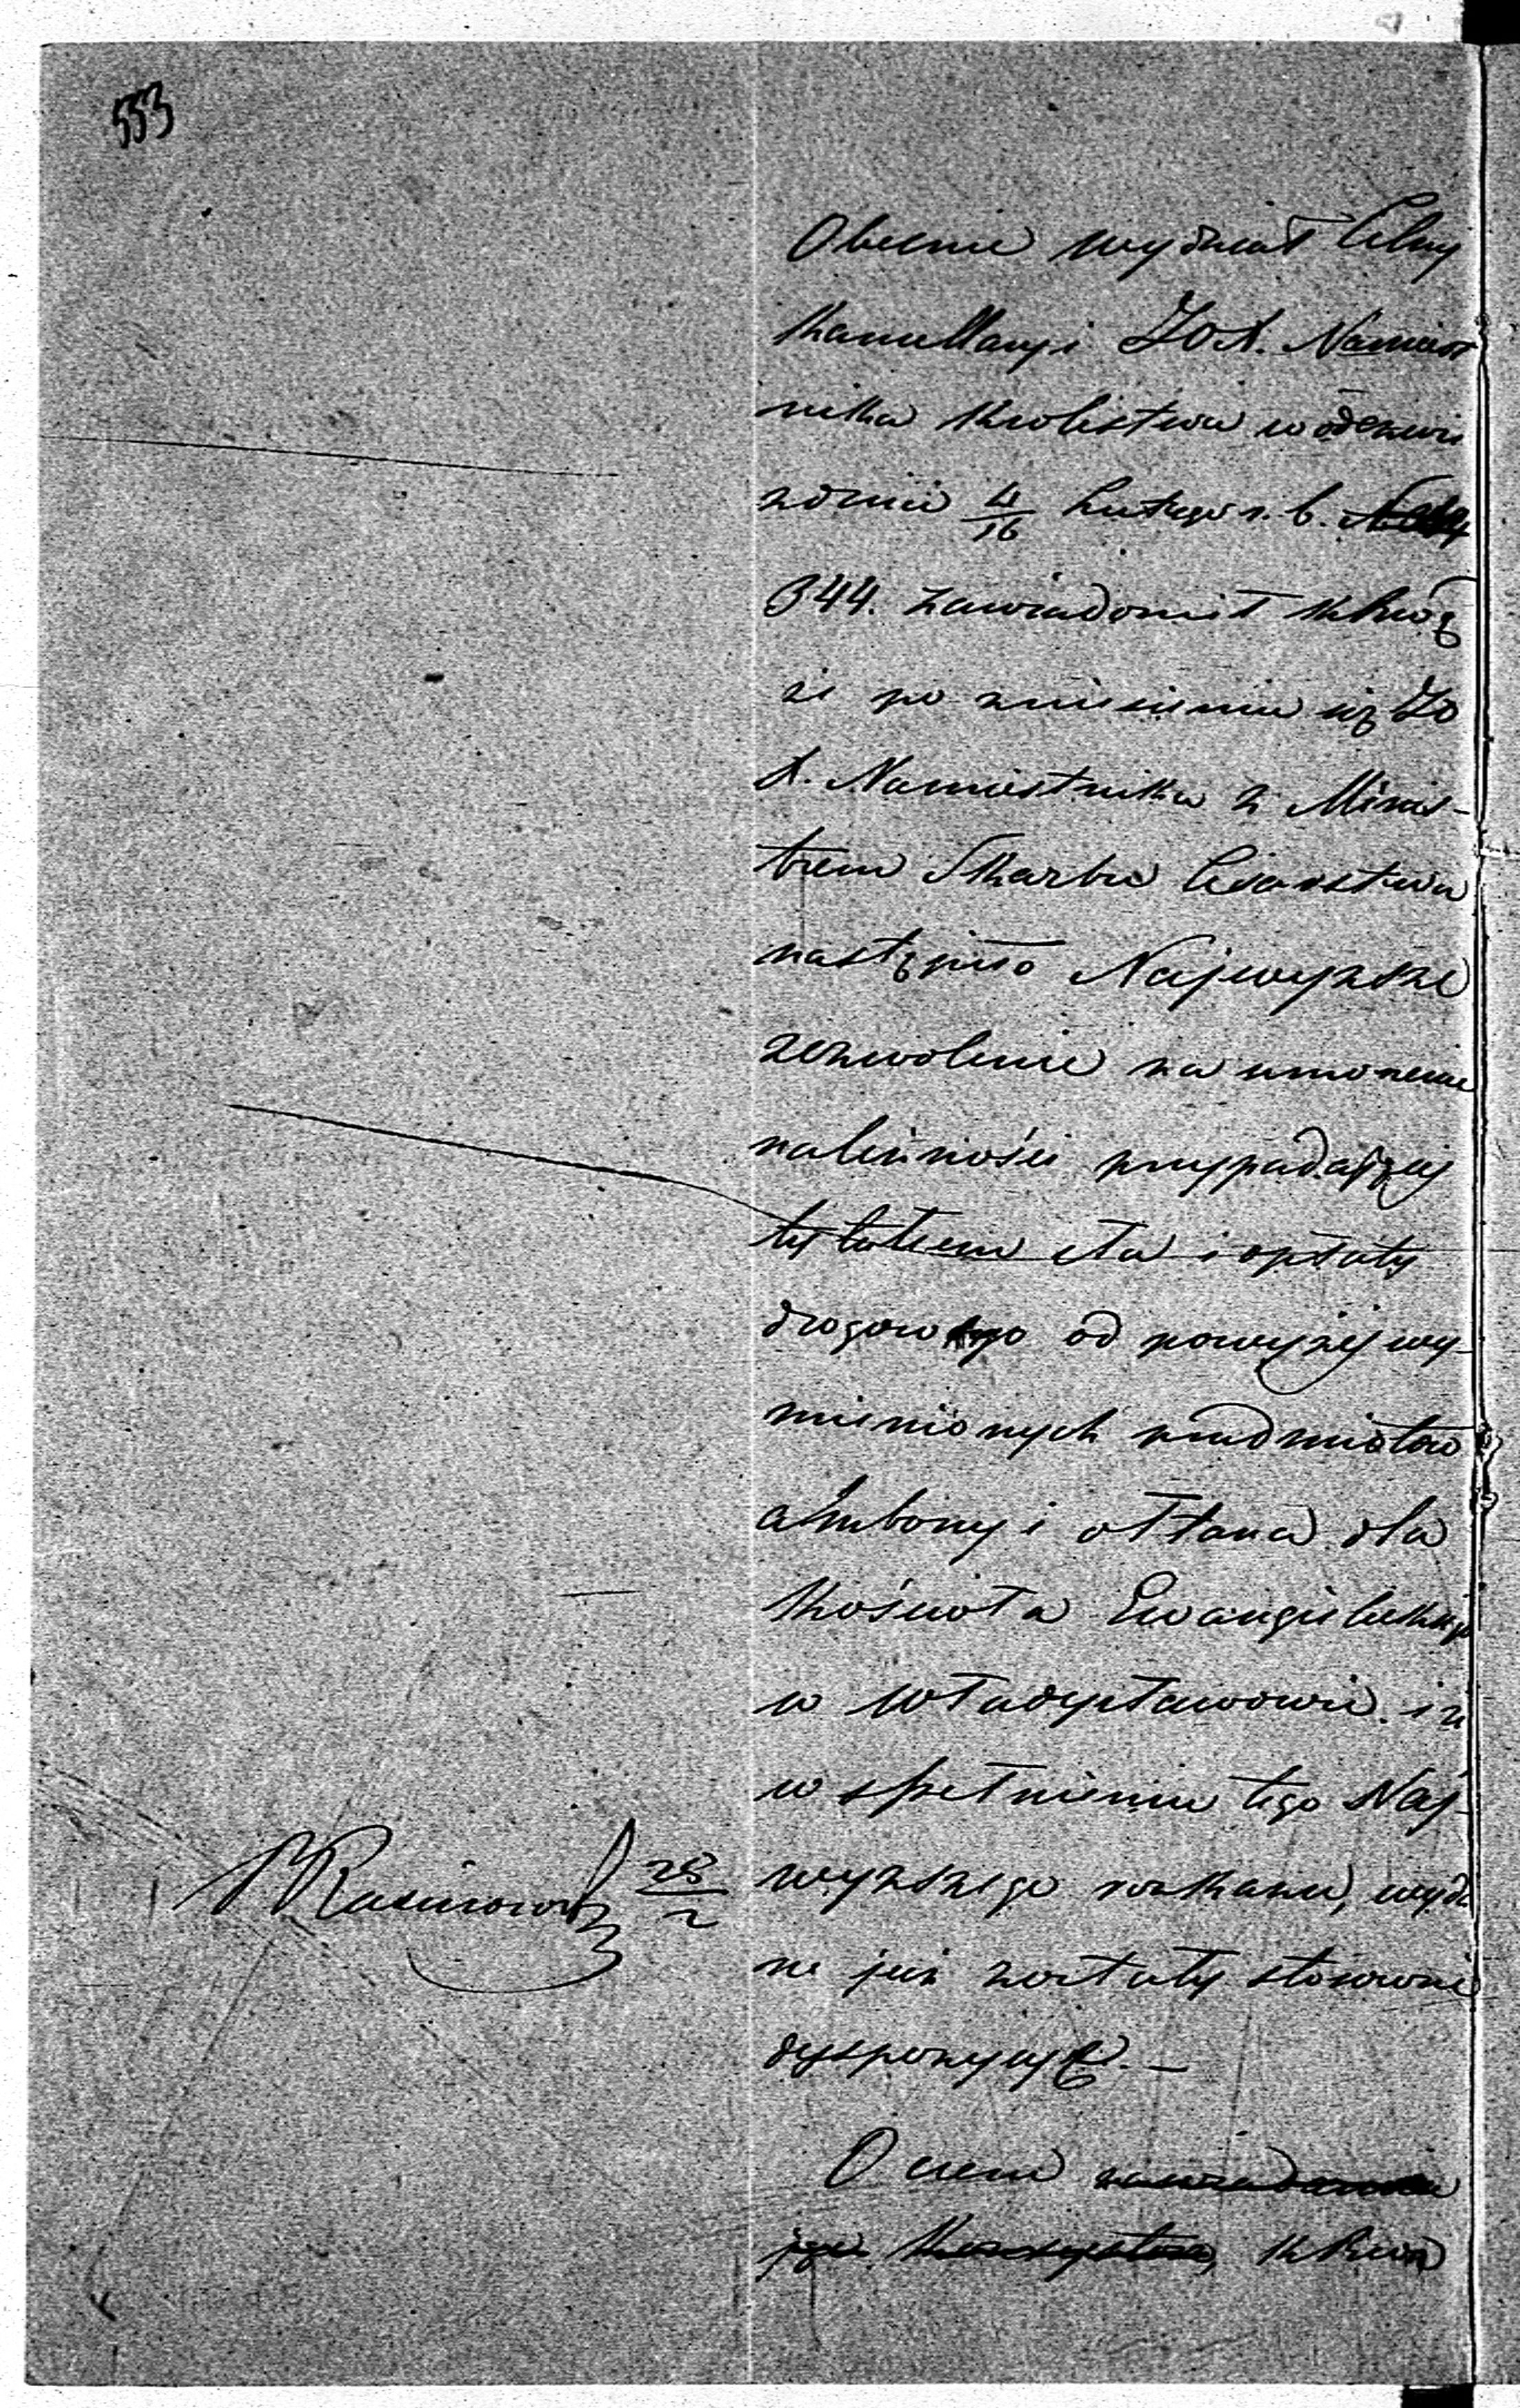 553
Obecnie wydział Celny
Kancellaryi JOX. Namiest
nika Królestwa w odezwie
z dnia 4/16 Lutego r. b.
344. zawiadomił KRząd
że po zniesieniu się JO
X. Namiestnika z Minis-
trem Skarbu Cesarstwa
nastąpiło Najwyższe
zezwolenie na umorzenie
należności przypadającej
tytułem cła i opłaty
drogowego od powyżej wy-
mienionych przedmiotów
ambony i ołtarza dla
kościoła Ewangielickiego
w Władysławowie i że
w spełnieniu tego Naj-
wyższego rozkazu, wyda
ne już zostały stosowne
dyspozycye. —
O czem zawiadamia
jąc KRząd
28/2